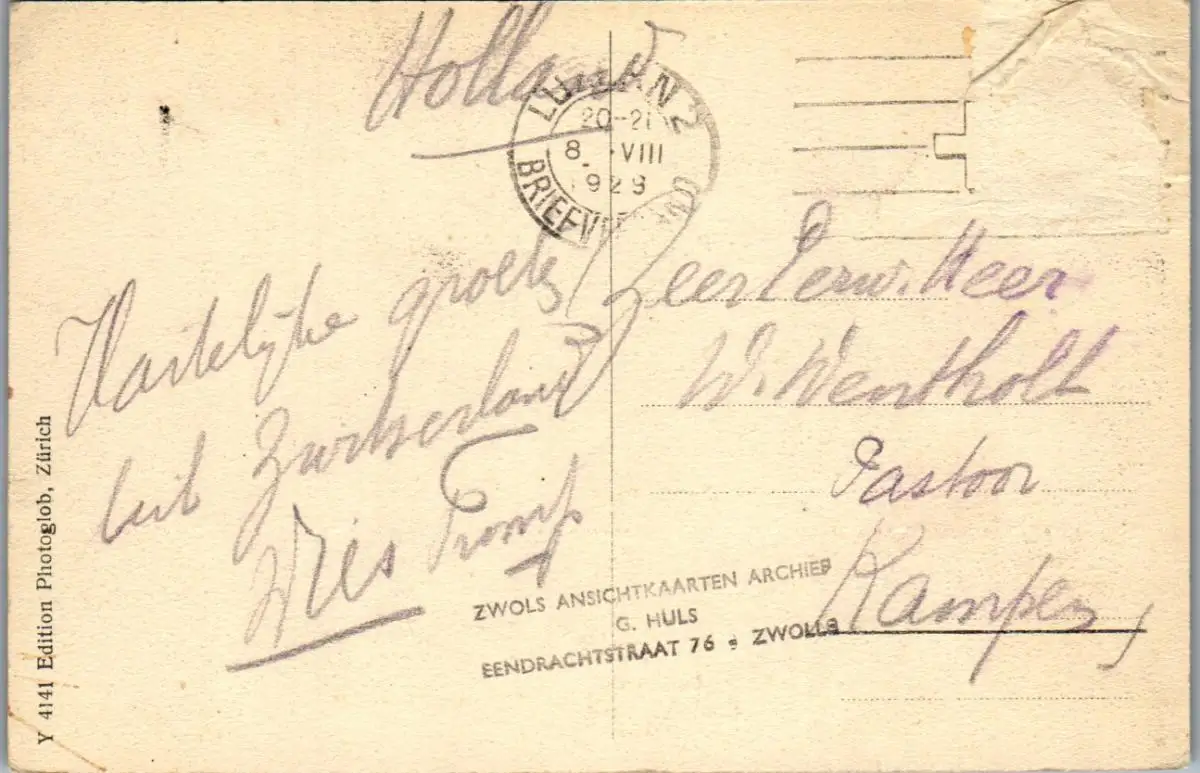 Holland
LUZERN 2
20-21
8. VIII
1928
BRIEFVERSAND
Hartelijke groeten
uit Zwitserland
Tromp
Zeer Eerw. Heer
W. Wentholt
Pastoor
Kampen
ZWOLS ANSICHTKAARTEN ARCHIEF
G. HULS
EENDRACHTSTRAAT 76 - ZWOLLE
Y 4141 Edition Photoglob, Zürich